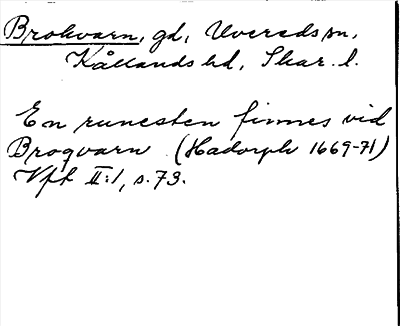 Brokvarn, gd, Uvereds sn,
Kållands hd, Skar. l.
En runesten finnes vid
Broqvarn (Hadorph 1669-71)
Vft II:1, s. 73.